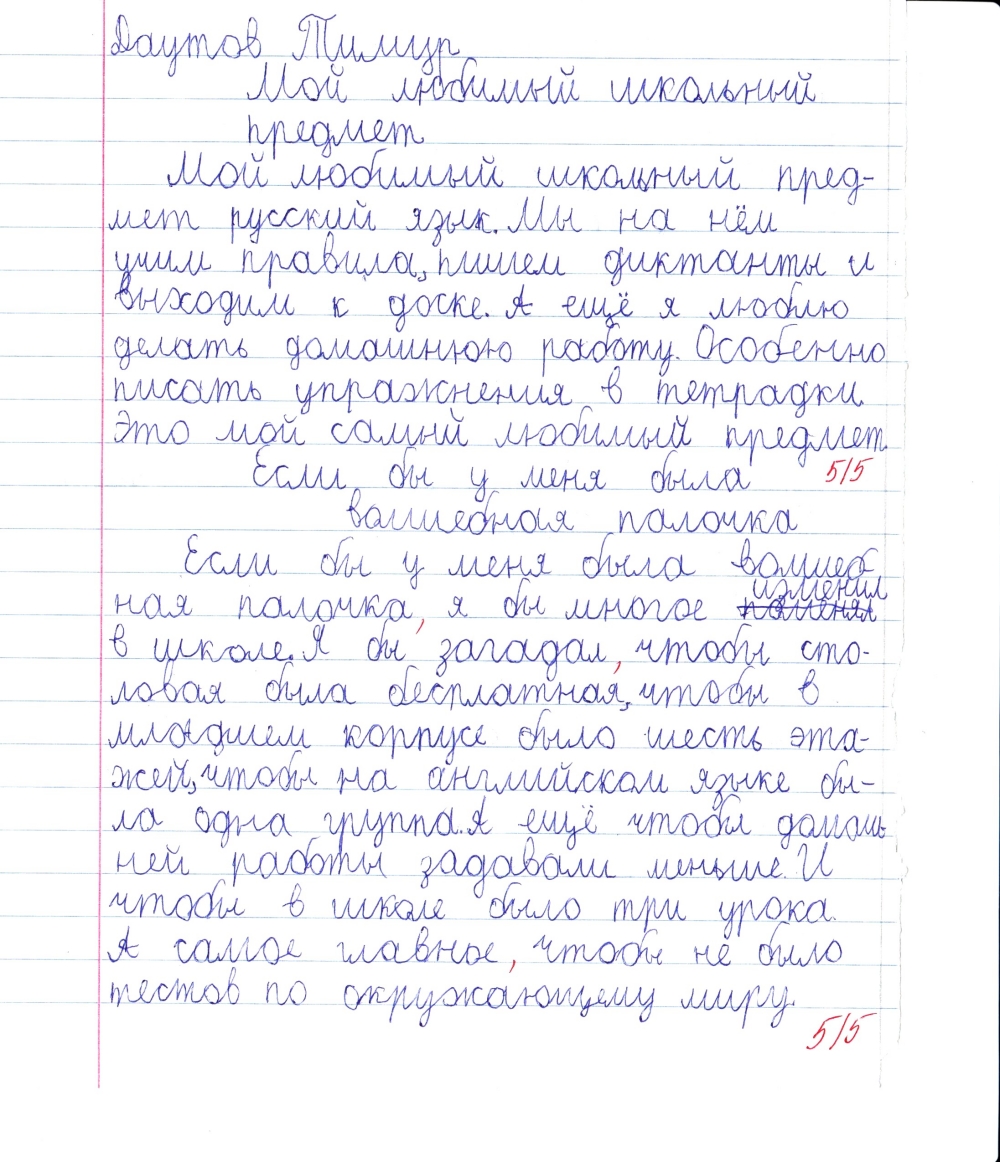 Даутов Тимур
Мой любимый школьный
предмет
Мой любимый школьный пред-
мет русский язык. Мы на нём
учим правила, пишем диктанты и
выходим к доске. А ещё я люблю
делать домашнюю работу. Особенно
писать упражнения в тетрадки.
Это мой самый любимый предмет.
Если бы у меня была
5/5
волшебная палочка
Если бы у меня была волшеб-
ная палочка, я бы многое поменял изменил
в школе. Я бы загадал, чтобы сто-
ловая была бесплатная, чтобы в
младшем корпусе было шесть эта-
жей, чтобы на английском языке бы-
ла одна группа. А ещё чтобы домаш-
ней работы задавали меньше. И
чтобы в школе было три урока.
А самое главное, чтобы не было
тестов по окружающему миру.
5/5